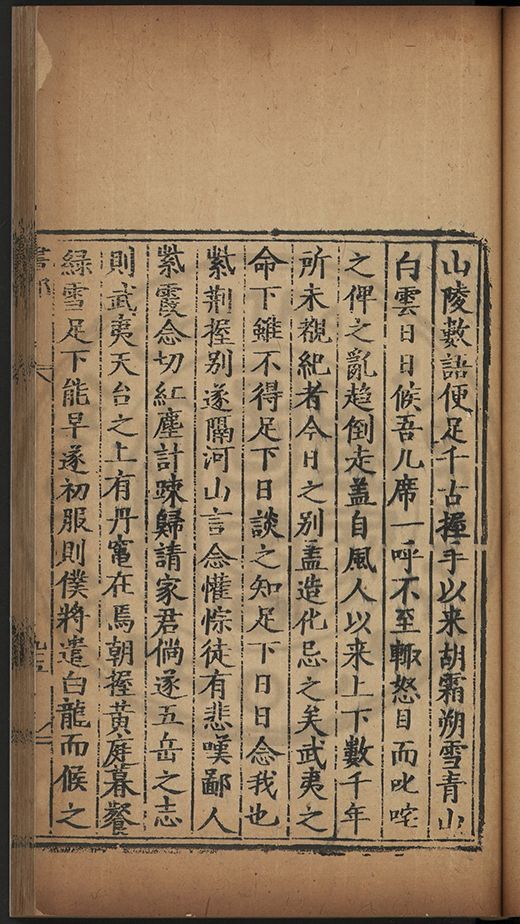 山陵數語便足千古握手以来胡霜朔雪青山
白雲日日候吾几席一呼不至輙怒目而叱咤
之俾之亂趋倒走盖自風人以来上下數千年
所未覩紀者今日之别盖造化忌之矣武夷之
命下雖不得足下日談之知足下日日念我也
紫荆握别遂隔河山言念懽悰徒有悲嘆鄙人
紫霞念切紅塵計踈歸請家君倘遂五岳之志
則武夷天台之上有丹竃在焉朝握黄庭暮餐
緑雪足下能早遂初服則僕將遣白龍而候之